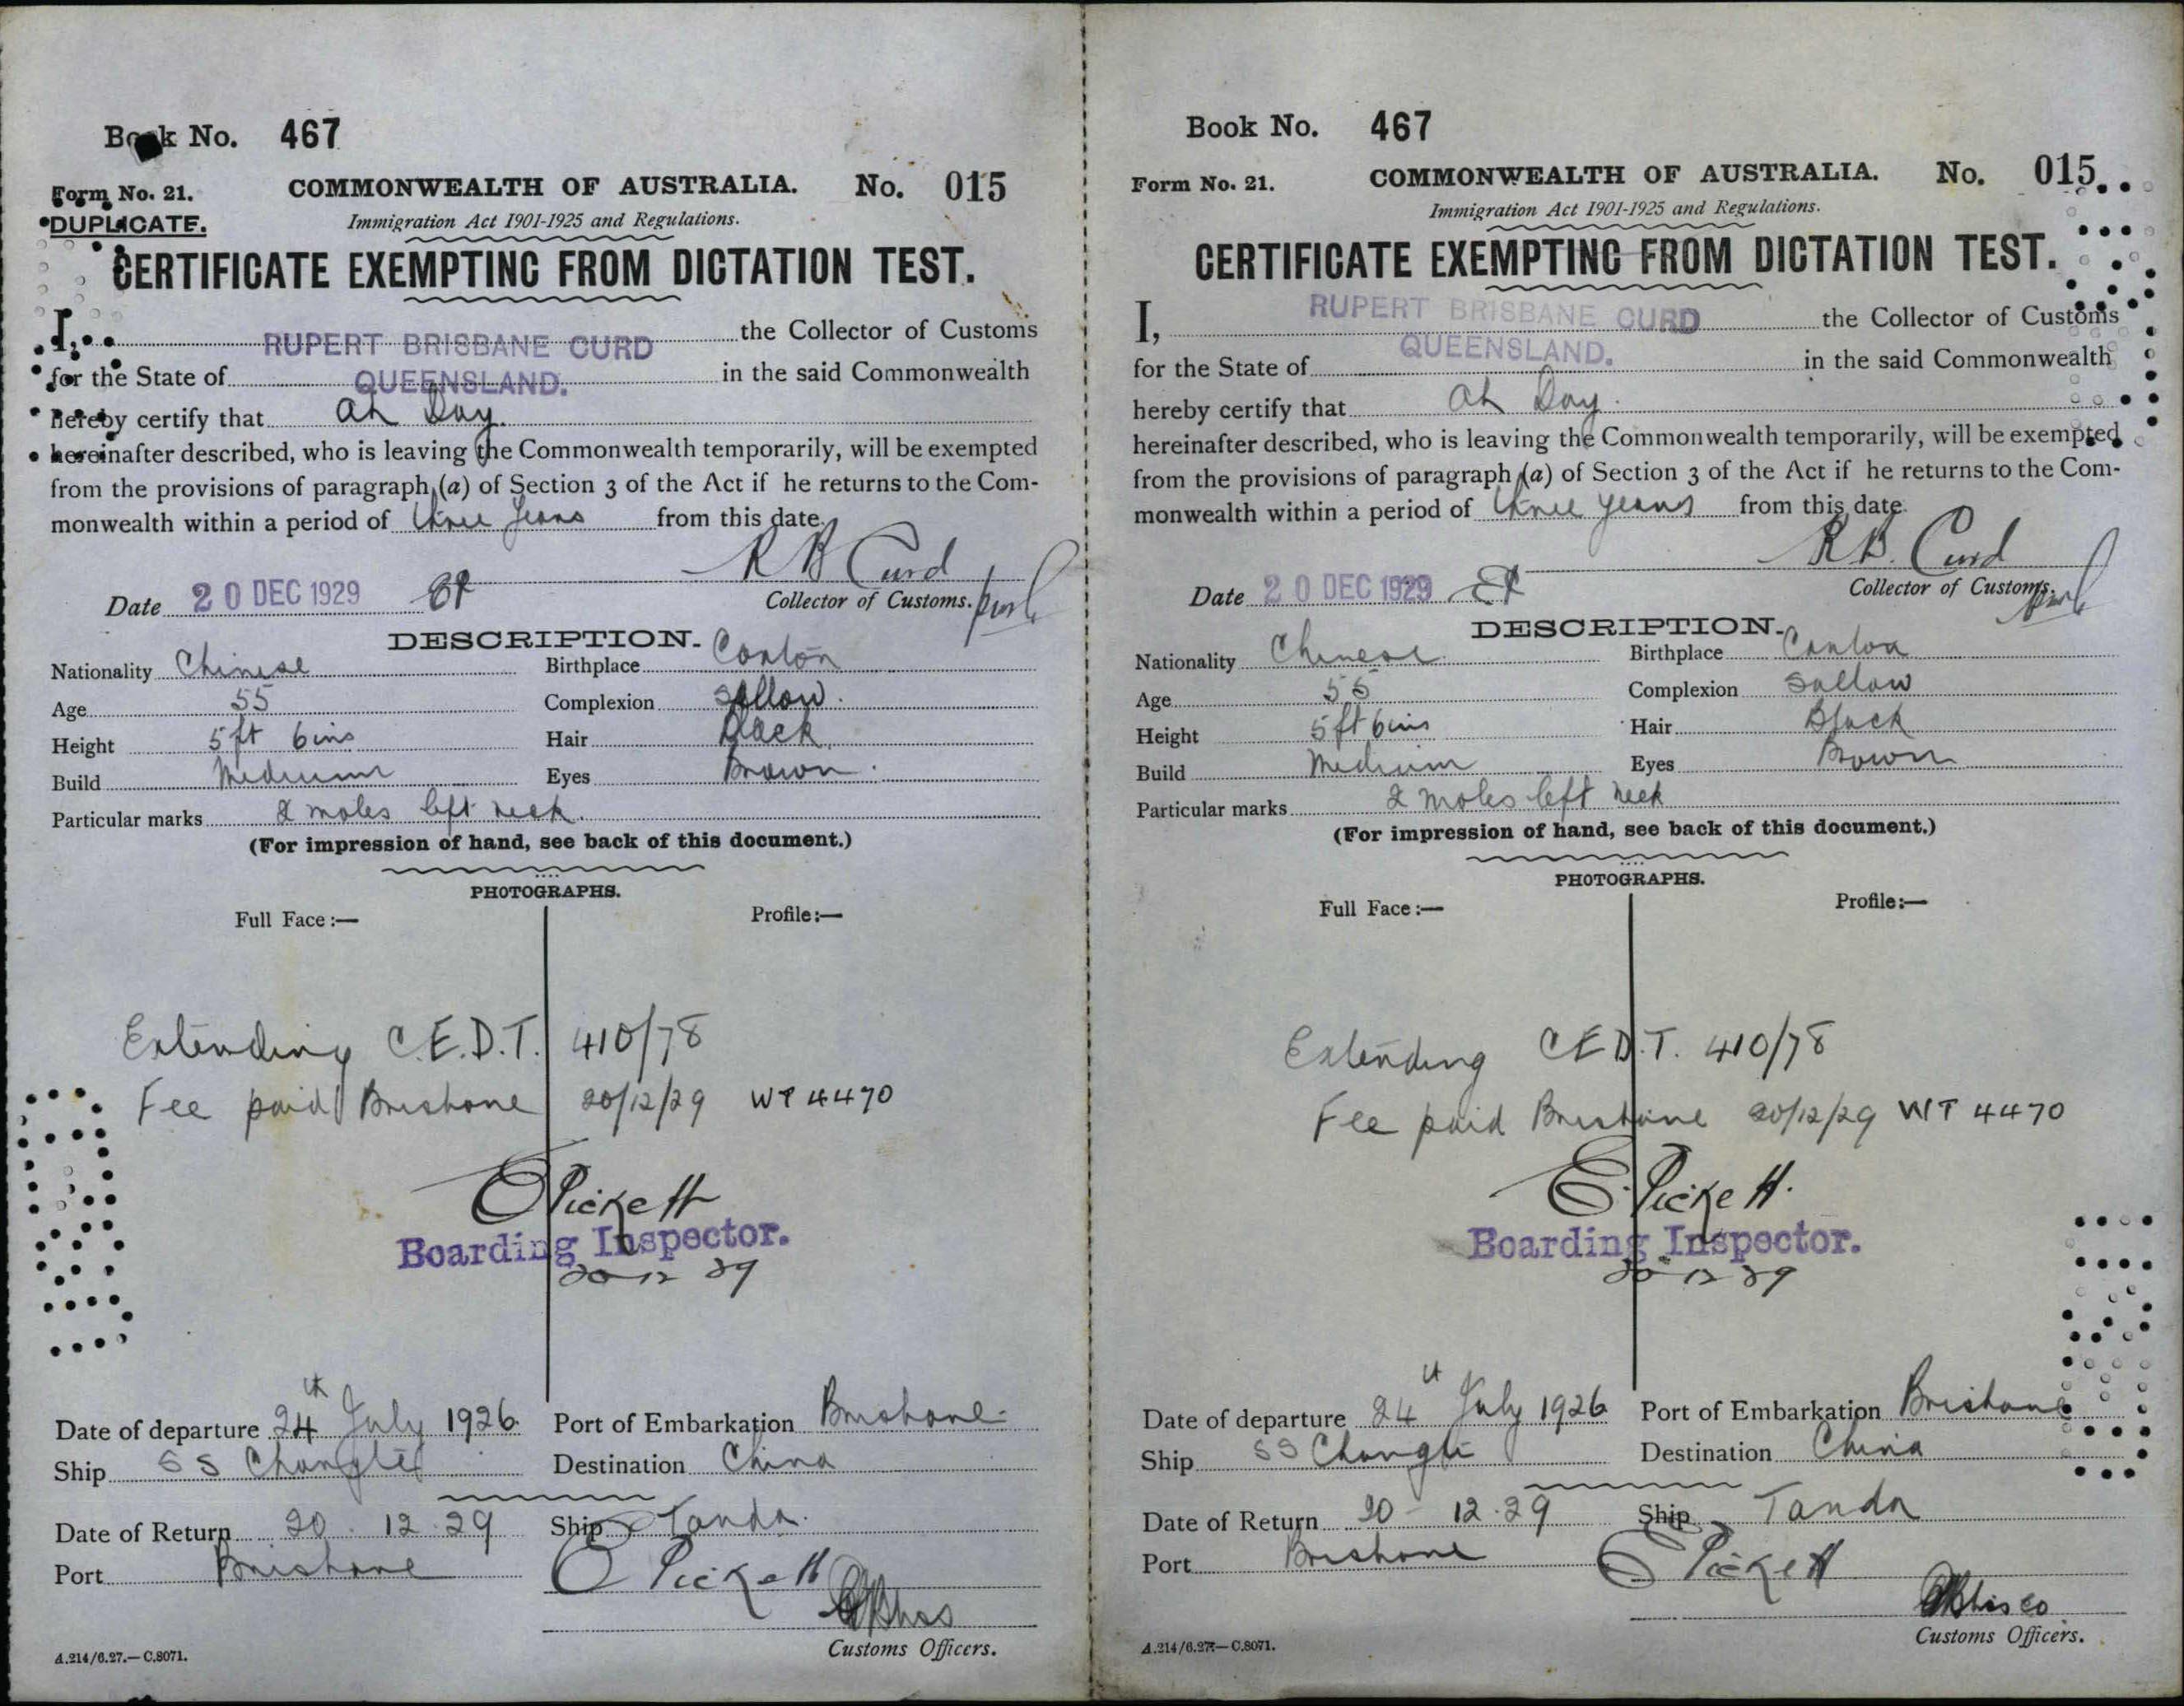 Book No. 467
Form No. 21. COMMONWEALTH OF AUSTRALIA. No. 015
DUPLICATE. Immigration Act 1901-1925 and Regulations.
CERTIFICATE EXEMPTING FROM DICTATION TEST.
I, RUPERT BRISBANE CURD the Collector of Customs
for the State of QUEENSLAND. in the said Commonwealth
hereby certify that Ah Day.
hereinafter described, who is leaving the Commonwealth temporarily, will be exempted
from the provisions of paragraph (a) of Section 3 of the Act if he returns to the Com-
monwealth within a period of three years from this date.
R B Curd
Date 20 DEC 1929 Collector of Customs.
DESCRIPTION.
Nationality Chinese Birthplace Canton
Age 55 Complexion Sallow.
Height 5 ft 6 ins Hair Black
Build Medium Eyes Brown.
Particular marks 2 moles left neck.
(For impression of hand, see back of this document.)
PHOTOGRAPHS.
Full Face:— Profile:—
Extending C.E.D.T. 410/78
Fee paid Brisbane 20/12/29 WT 4470
E Pickett
Boarding Inspector.
20 12 29
Date of departure 24th July 1926 Port of Embarkation Brisbane
Ship SS Changte Destination China
Date of Return 20.12.29 Ship Tanda.
Port Brisbane E Pickett
Customs Officers.
A.214/6.27.—C.8071.
Book No. 467
Form No. 21. COMMONWEALTH OF AUSTRALIA. No. 015
Immigration Act 1901-1925 and Regulations.
CERTIFICATE EXEMPTING FROM DICTATION TEST.
I, RUPERT BRISBANE CURD the Collector of Customs
for the State of QUEENSLAND. in the said Commonwealth
hereby certify that Ah Day.
hereinafter described, who is leaving the Commonwealth temporarily, will be exempted
from the provisions of paragraph (a) of Section 3 of the Act if he returns to the Com-
monwealth within a period of three years from this date.
R B. Curd
Date 20 DEC 1929 Collector of Customs.
DESCRIPTION.
Nationality Chinese Birthplace Canton
Age 55 Complexion Sallow
Height 5 ft 6 ins Hair Black
Build Medium Eyes Brown
Particular marks 2 moles left neck
(For impression of hand, see back of this document.)
PHOTOGRAPHS.
Full Face:— Profile:—
Extending C E D.T. 410/78
Fee paid Brisbane 20/12/29 WT 4470
E. Pickett.
Boarding Inspector.
20 12 29
Date of departure 24th July 1926 Port of Embarkation Brisbane
Ship SS Changte Destination China
Date of Return 20 - 12.29 Ship Tanda
Port Brisbane E Pickett
Customs Officers.
A.214/6.27.—C.8071.